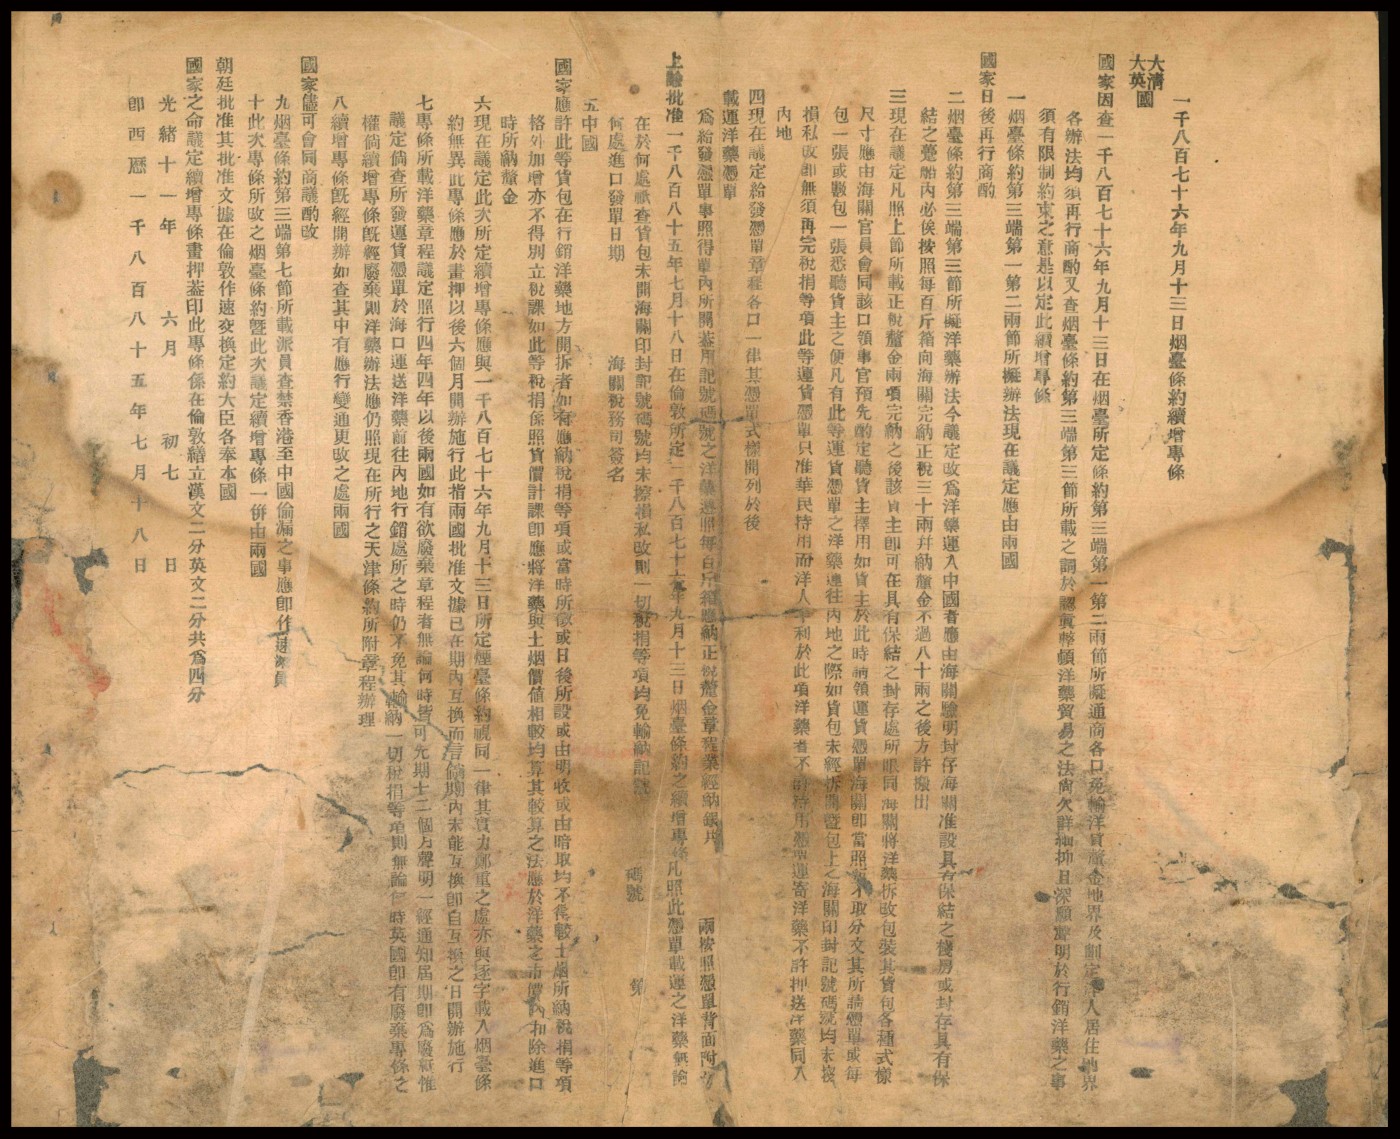 一千八百七十六年九月十三日烟臺條約續增專條
大清
大英國
國家因查一千八百七十六年九月十三日在烟臺所定條約第三端第一第二兩節所擬通商各口免輸洋貨釐金地界及劃定洋人居住地界
各辦法均須再行商酌又查烟臺條約第三端第三節所載之詞於認真整頓洋藥貿易之法尚欠詳細抑且深願聲明於行銷洋藥之事
須有限制約束之意是以定此續增專條
一烟臺條約第三端第一第二兩節所擬辦法現在議定應由兩國
國家日後再行商酌
二烟臺條約第三端第三節所擬洋藥辦法今議定改爲洋藥運入中國者應由海關驗明封存海關准設具有保結之棧房或封存具有保
結之躉船內必俟按照每百斤箱向海關完納正稅三十兩幷納釐金不過八十兩之後方許搬出
三現在議定凡照上節所載正稅釐金兩項完納之後該貨主即可在具有保結之封存處所眼同海關將洋藥拆改包裝其貨包各種式樣
尺寸應由海關官員會同該口領事官預先酌定聽貨主擇用如貨主於此時請領運貨憑單海關即當照給不取分文其所請憑單或每
包一張或數包一張悉聽貨主之便凡有此等運貨憑單之洋藥運往內地之際如貨包未經拆開暨包上之海關印封記號碼號均未擦
損私改即無須再完稅捐等項此等運貨憑單只准華民持用而洋人牟利於此項洋藥者不許持用憑單運寄洋藥不許押送洋藥同入
內地
四現在議定給發憑單章程各口一律其憑單式樣開列於後
載運洋藥憑單
爲給發憑單事照得單內所開蓋用記號碼號之洋藥遵照每百斤箱應納正稅釐金章程業經納銀共 兩按照憑單背面附
上諭批准一千八百八十五年七月十八日在倫敦所定一千八百七十六年九月十三日烟臺條約之續增專條凡照此憑單載運之洋藥無論
在於何處祇查貨包未開海關印封記號碼號均未擦損私改則一切稅捐等項均免輸納記號 碼號 第
何處進口發單日期 海關稅務司簽名
五中國
國家應許此等貨包在行銷洋藥地方開拆者如有應納稅捐等項或當時所徵或日後所設或由明收或由暗取均不得較土烟所納稅捐等項
格外加增亦不得別立稅課如此等稅捐係照貨價計課即應將洋藥與土烟價值相較均算其較算之法應於洋藥之市價內扣除進口
時所納釐金
六現在議定此次所定續增專條應與一千八百七十六年九月十三日所定煙臺條約視同一律其實力鄭重之處亦與逐字載入烟臺條
約無異此專條應於畫押以後六個月開辦施行此指兩國批准文據已在期內互換而言倘期內未能互換即自互換之日開辦施行
七專條所載洋藥章程議定照行四年四年以後兩國如有欲廢棄章程者無論何時皆可先期十二個月聲明一經通知屆期即爲廢紙惟
議定倘查所發運貨憑單於海口運送洋藥前往內地行銷處所之時仍不免其輸納一切稅捐等項則無論何時英國即有廢棄專條之
權倘續增專條旣經廢棄則洋藥辦法應仍照現在所行之天津條約所附章程辦理
八續增專條旣經開辦如查其中有應行變通更改之處兩國
國家儘可會同商議酌改
九烟臺條約第三端第七節所載派員查禁香港至中國偷漏之事應即作速派員
十此次專條所改之烟臺條約曁此次議定續增專條一併由兩國
朝廷批准其批准文據在倫敦作速交換定約大臣各奉本國
國家之命議定續增專條畫押蓋印此專條係在倫敦繕立漢文二分英文二分共爲四分
光緒十一年 六月 初七 日
即西歷一千八百八十五年七月十八日